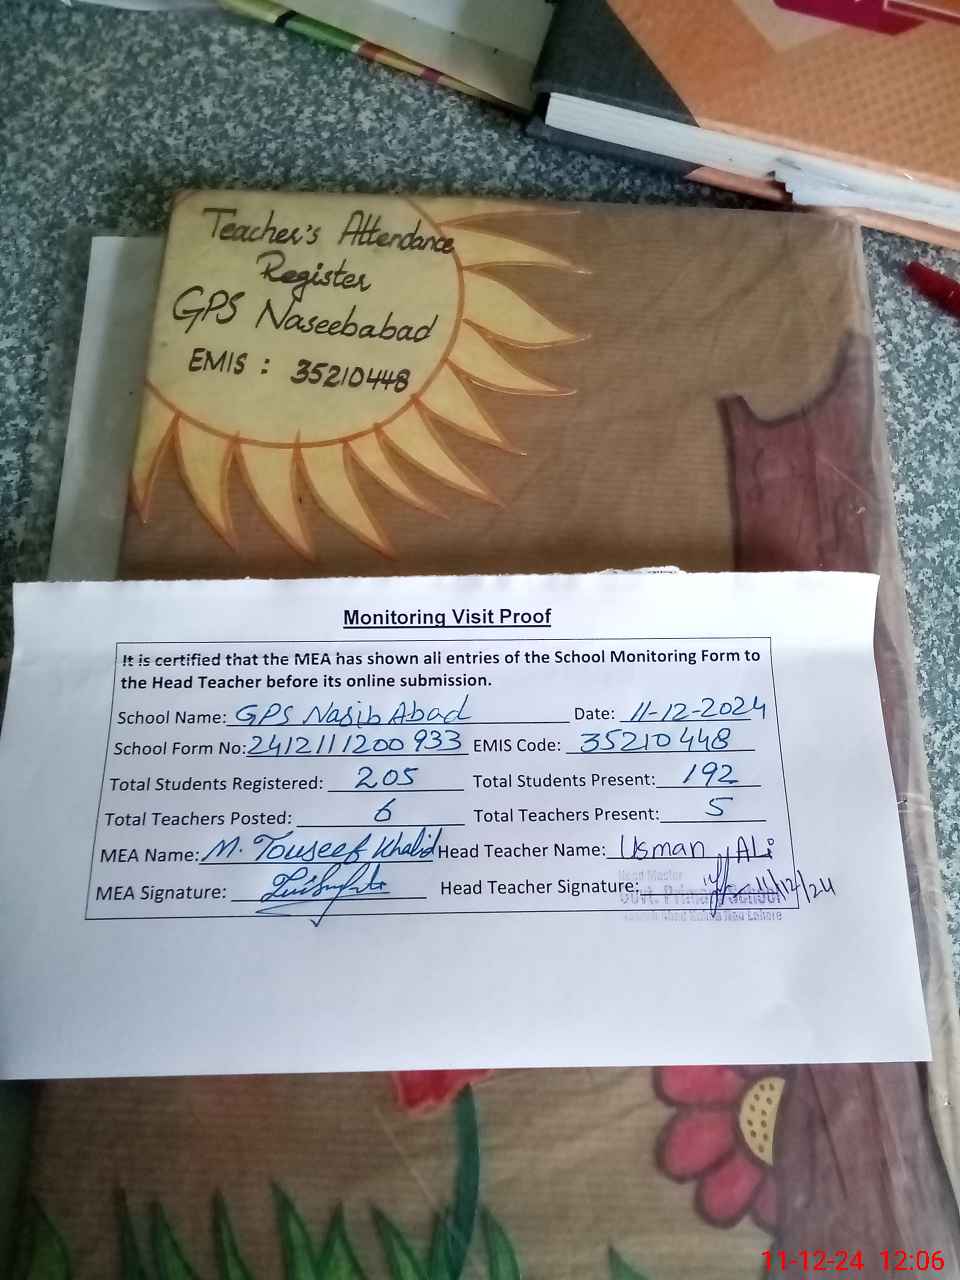 Teacher's Attendance
Register
GPS Naseebabad
EMIS : 35210448
Monitoring Visit Proof
It is certified that the MEA has shown all entries of the School Monitoring Form to
the Head Teacher before its online submission.
School Name: GPS Nasib Abad Date: 11-12-2024
School Form No: 2412111200933 EMIS Code: 35210448
Total Students Registered: 205 Total Students Present: 192
Total Teachers Posted: 6 Total Teachers Present: 5
MEA Name: M. Touseef Khalid Head Teacher Name: Usman Ali
Head Master
MEA Signature: Head Teacher Signature: 11/12/24
Govt. Primary School
Lahore
11-12-24 12:06